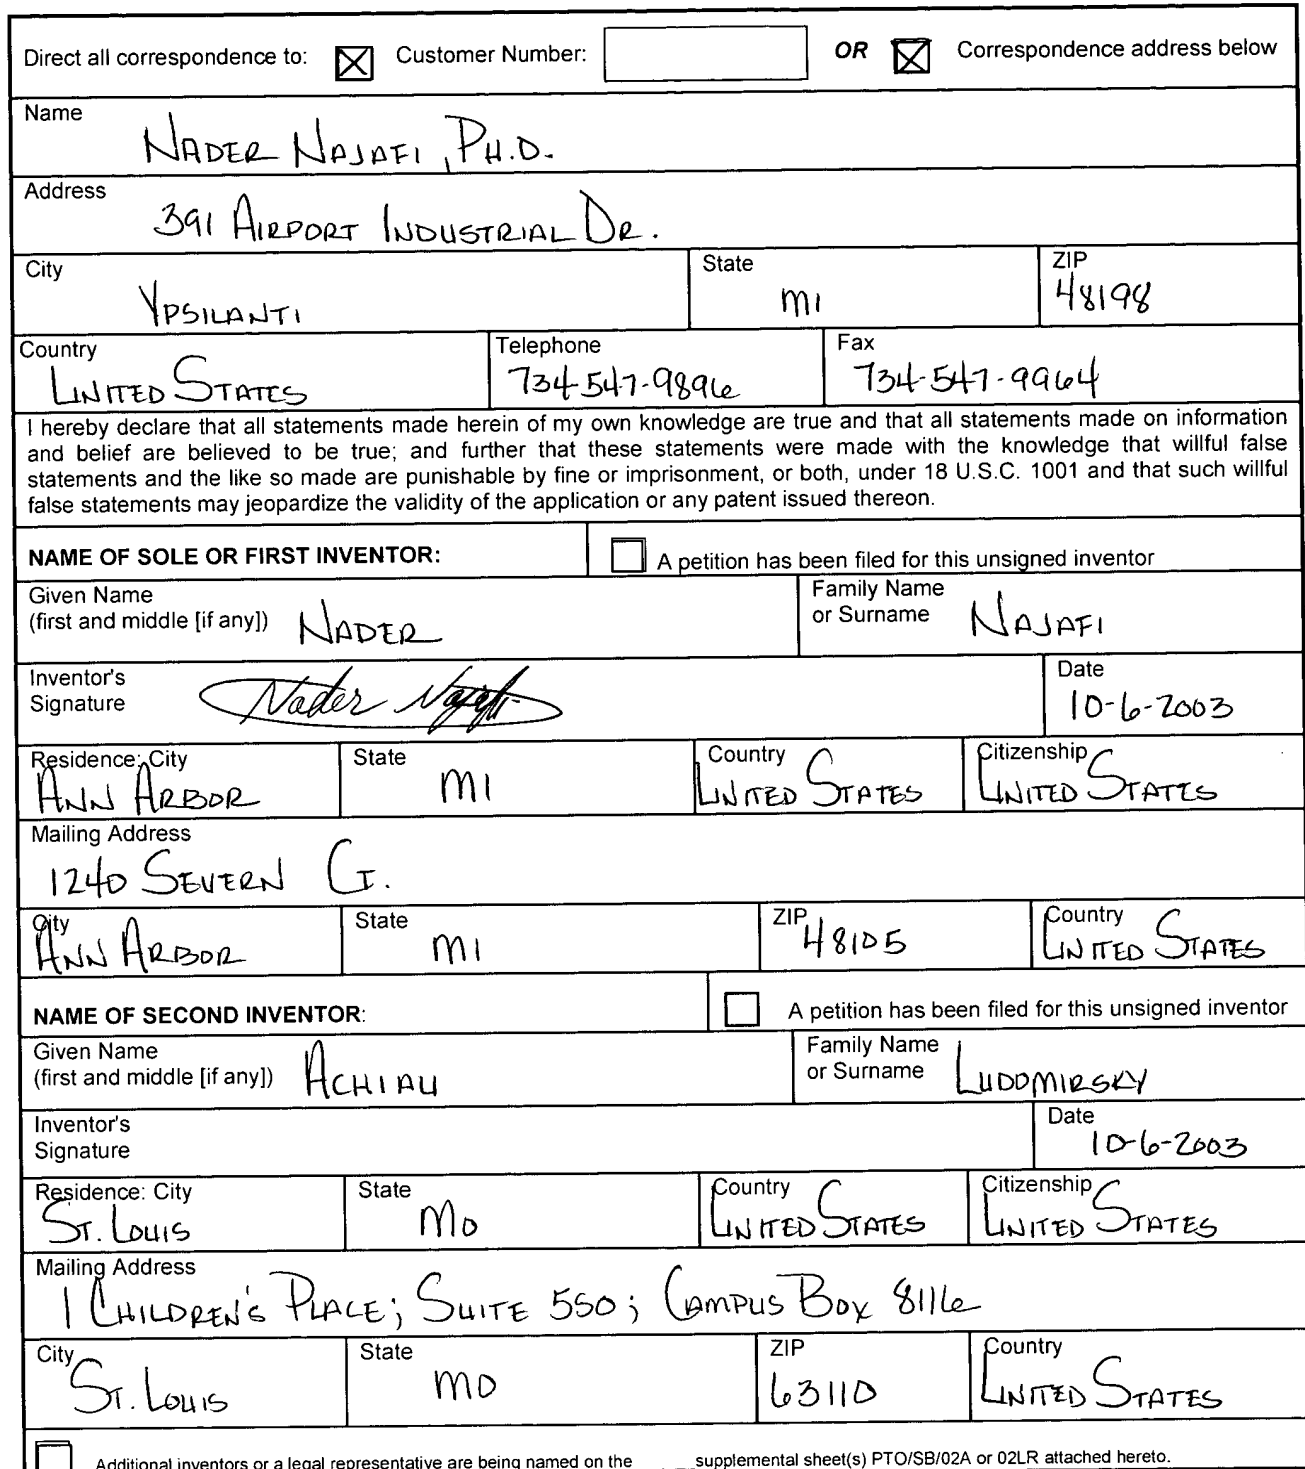 Direct all correspondence to: ☒ Customer Number: OR ☒ Correspondence address below
Name
NADER NAJAFI, PH.D.
Address
391 AIRPORT INDUSTRIAL DR.
City State ZIP
YPSILANTI MI 48198
Country Telephone Fax
UNITED STATES 734-547-9896 734-547-9964
I hereby declare that all statements made herein of my own knowledge are true and that all statements made on information
and belief are believed to be true; and further that these statements were made with the knowledge that willful false
statements and the like so made are punishable by fine or imprisonment, or both, under 18 U.S.C. 1001 and that such willful
false statements may jeopardize the validity of the application or any patent issued thereon.
NAME OF SOLE OR FIRST INVENTOR: ☐ A petition has been filed for this unsigned inventor
Given Name Family Name
(first and middle [if any]) NADER or Surname NAJAFI
Inventor's Date
Signature Nader Najafi 10-6-2003
Residence: City State Country Citizenship
ANN ARBOR MI UNITED STATES UNITED STATES
Mailing Address
1240 SEVERN CT.
City State ZIP Country
ANN ARBOR MI 48105 UNITED STATES
NAME OF SECOND INVENTOR: ☐ A petition has been filed for this unsigned inventor
Given Name Family Name
(first and middle [if any]) ACHIAU or Surname LUDOMIRSKY
Inventor's Date
Signature 10-6-2003
Residence: City State Country Citizenship
ST. LOUIS MO UNITED STATES UNITED STATES
Mailing Address
1 CHILDREN'S PLACE; SUITE 550; CAMPUS BOX 8116
City State ZIP Country
ST. LOUIS MO 63110 UNITED STATES
☐ Additional inventors or a legal representative are being named on the ___ supplemental sheet(s) PTO/SB/02A or 02LR attached hereto.